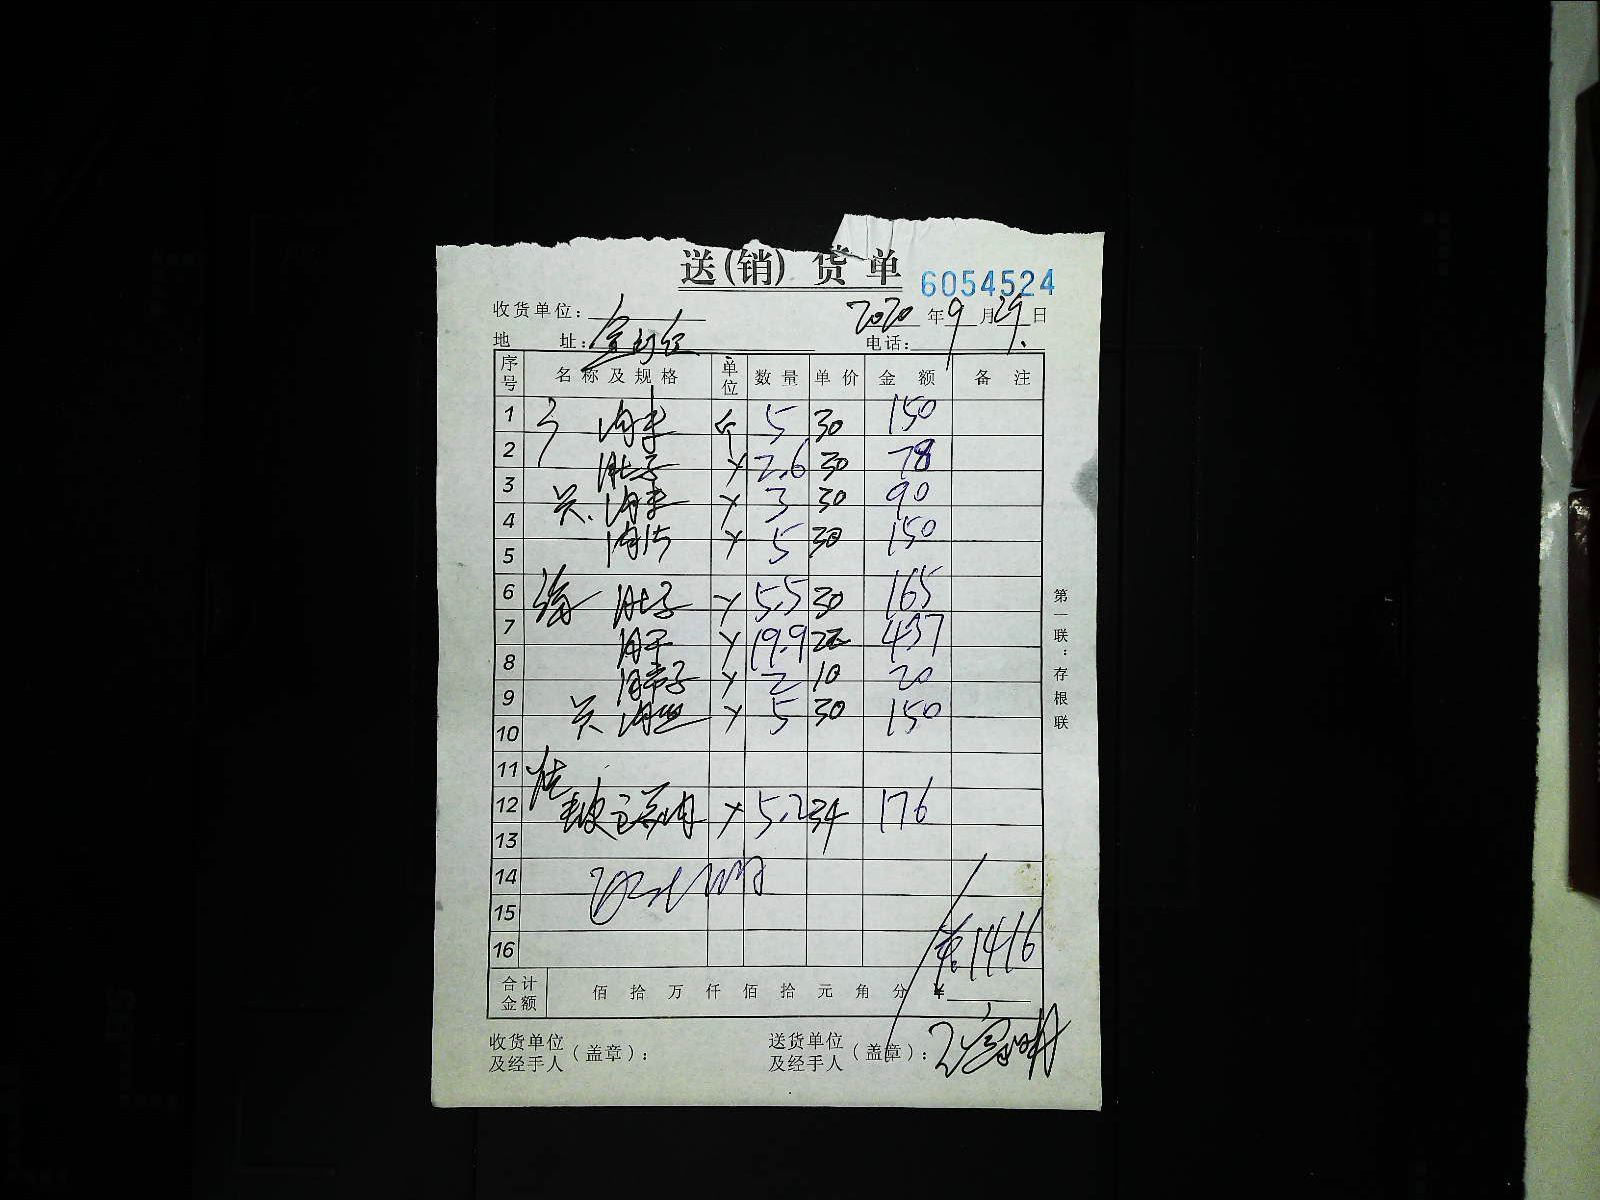 送(销)货单
6054524
收货单位: 2020年9月29日
地址: 电话:
序号 名称及规格 单位 数量 单价 金额 备注
1 肉末 5 30 150
2 肚子 2.6 30 78
3 肉末 3 30 90
4 肉片 5 30 150
5
6 肚子 5.5 30 165
7 19.9 22 437
8 2 10 20
9 肉丝 5 30 150
10
11
12 肉 5.2 34 176
13
14
15
16 1416
合计金额 佰拾万仟佰拾元角分 ¥
收货单位及经手人(盖章): 送货单位及经手人(盖章):
第一联:存根联